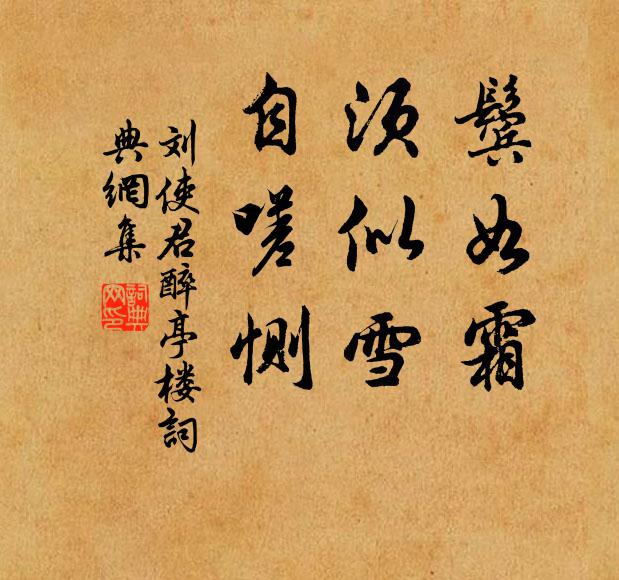 鬓如霜
须似雪
自嗟恻
刘使君醉亭楼词
典網集
詞典
网印